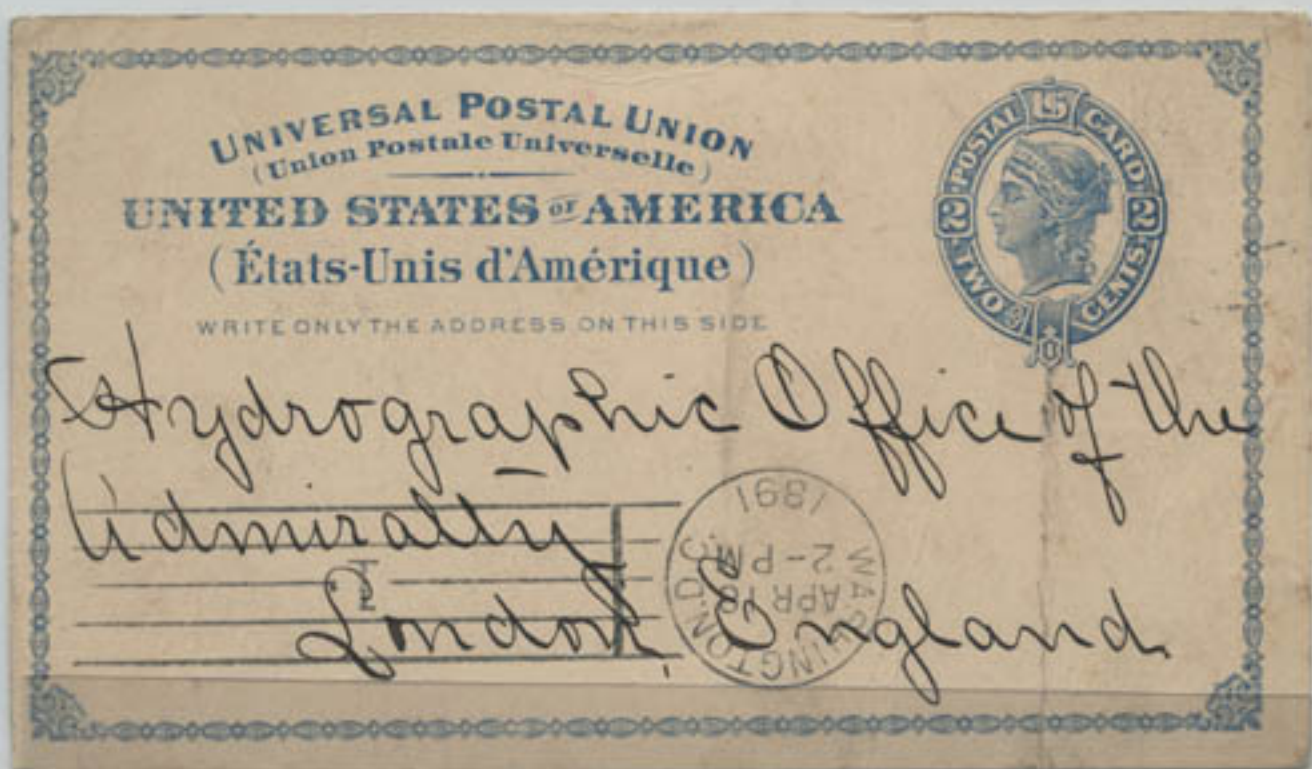 UNIVERSAL POSTAL UNION
(Union Postale Universelle)
UNITED STATES OF AMERICA
(États-Unis d'Amérique)
WRITE ONLY THE ADDRESS ON THIS SIDE
POSTAL U.S. CARD
2 2
TWO CENTS
Hydrographic Office of the
Admiralty
London, England
WASHINGTON, D.C.
APR 16
2-PM
1891